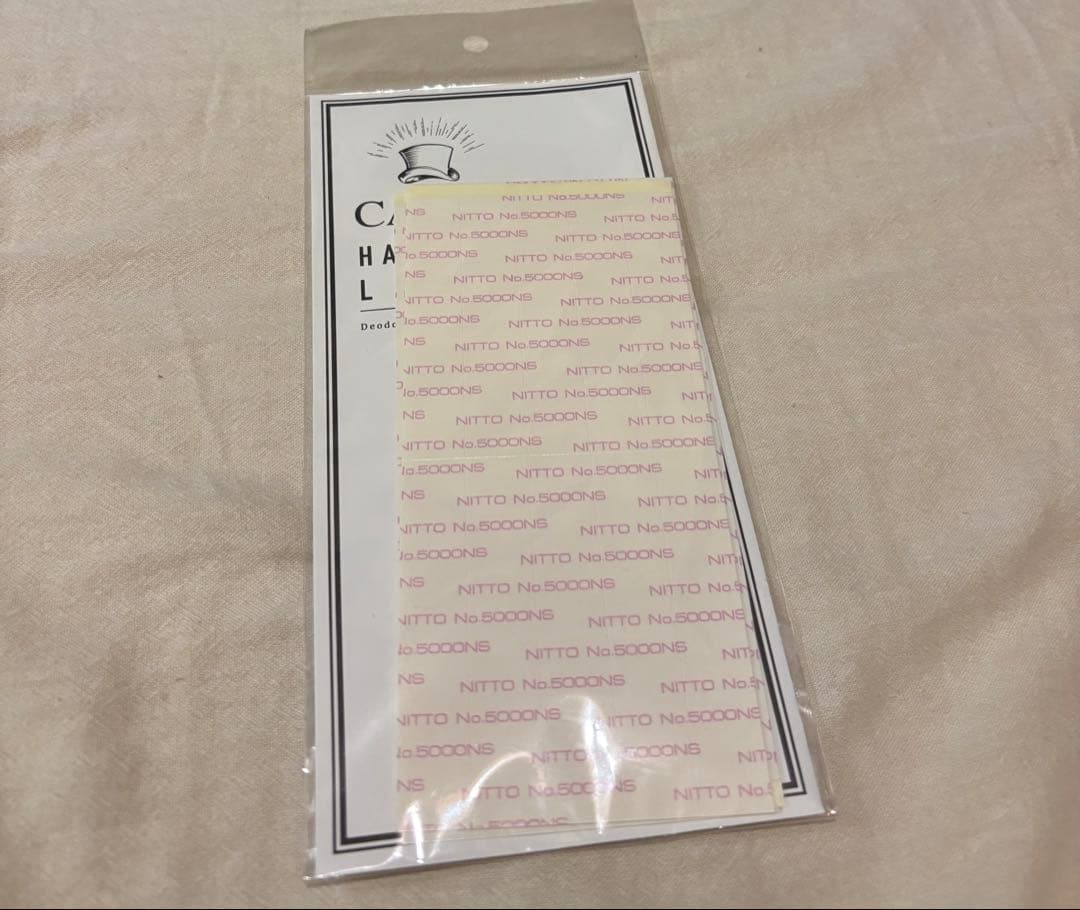 CA
HA
L
Deodo
NITTO No.5000NS NIT
NS NITTO No.5000NS NITTO No.5
NITTO No.5000NS NITTO No.5000NS
No.5000NS NITTO No.5000NS NIT
NS NITTO No.5000NS NITTO No.5
NITTO No.5000NS NITTO No.5000NS
No.5000NS NITTO No.5000NS NIT
NS NITTO No.5000NS NITTO No.5
NITTO No.5000NS NITTO No.5000NS
No.5000NS NITTO No.5000NS NIT
NS NITTO No.5000NS NITTO No.5
NITTO No.5000NS NITTO No.5000NS
No.5000NS NITTO No.5000NS NIT
NS NITTO No.5000NS NITTO No.5
NITTO No.5000NS NITTO No.5000NS
No.5000NS NITTO No.5000NS NIT
NS NITTO No.5000NS NITTO No.5
NITTO No.5000NS NITTO No.5000NS
No.5000NS NITTO No.5000NS NIT
NS NITTO No.5000NS NITTO No.5
NITTO No.5000NS NITTO No.5000NS
No.5000NS NITTO No.5000NS NIT
NS NITTO No.5000NS NITTO No.5
No.5000NS